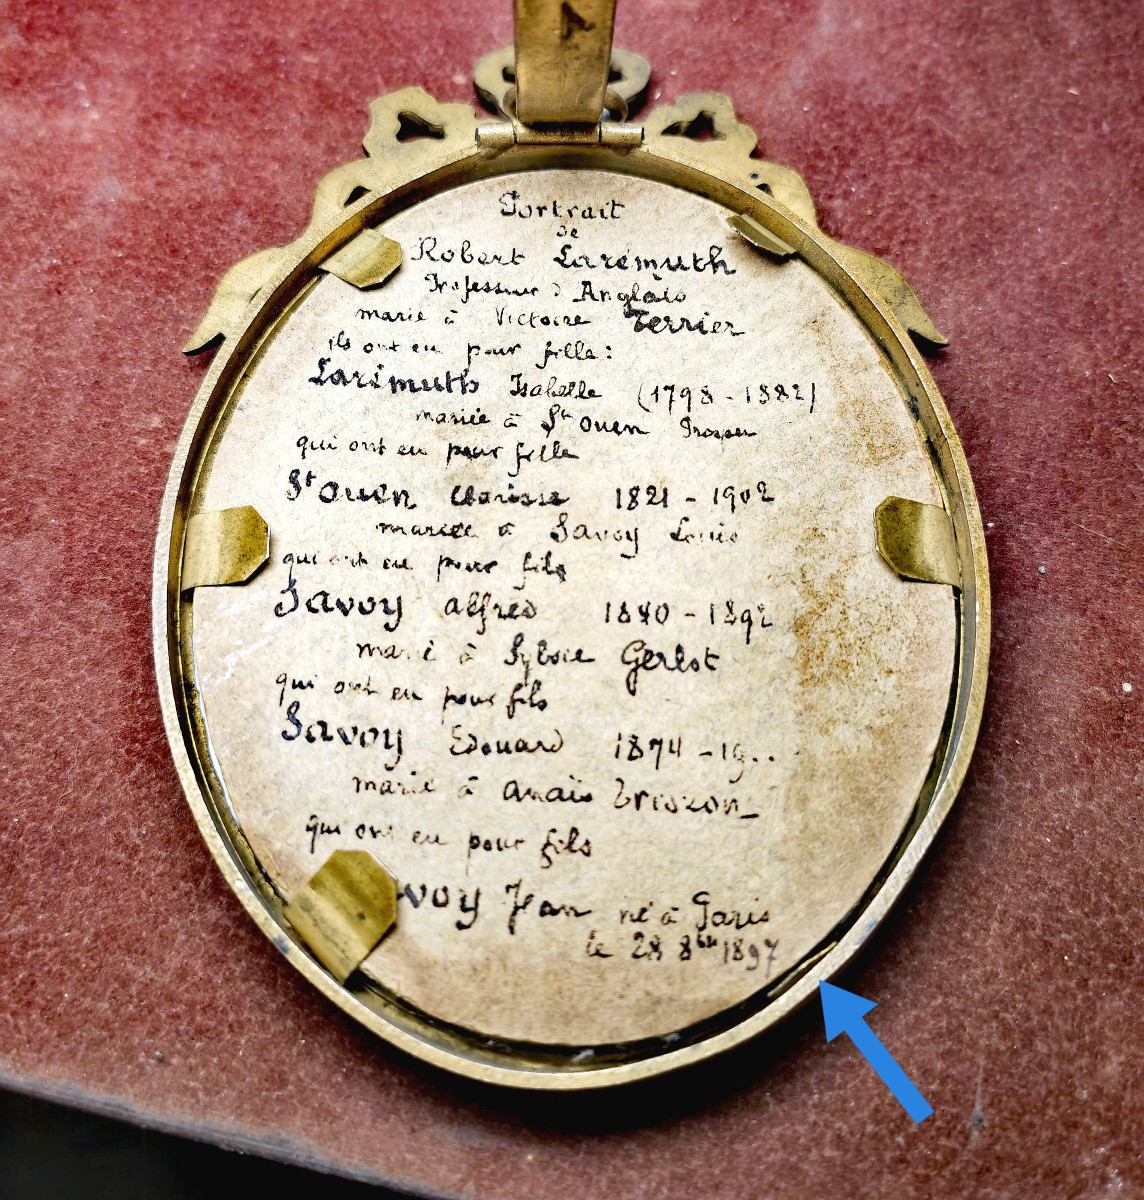 Portrait
de
Robert Laremuth
Professeur d'Anglais
marié à Victoire Terrier
ils ont eu pour fille :
Laremuth Isabelle (1798 - 1882)
mariée à St Ouen Prosper
qui ont eu pour fille
St Ouen Clarisse 1821 - 1902
mariée à Savoy Louis
qui ont eu pour fils
Savoy Alfred 1840 - 1892
marié à Sylvie Gerlot
qui ont eu pour fils
Savoy Edouard 1874 - 19..
marié à Anaïs
qui ont eu pour fils
voy Jean né à Paris
le 28 8bre 1897